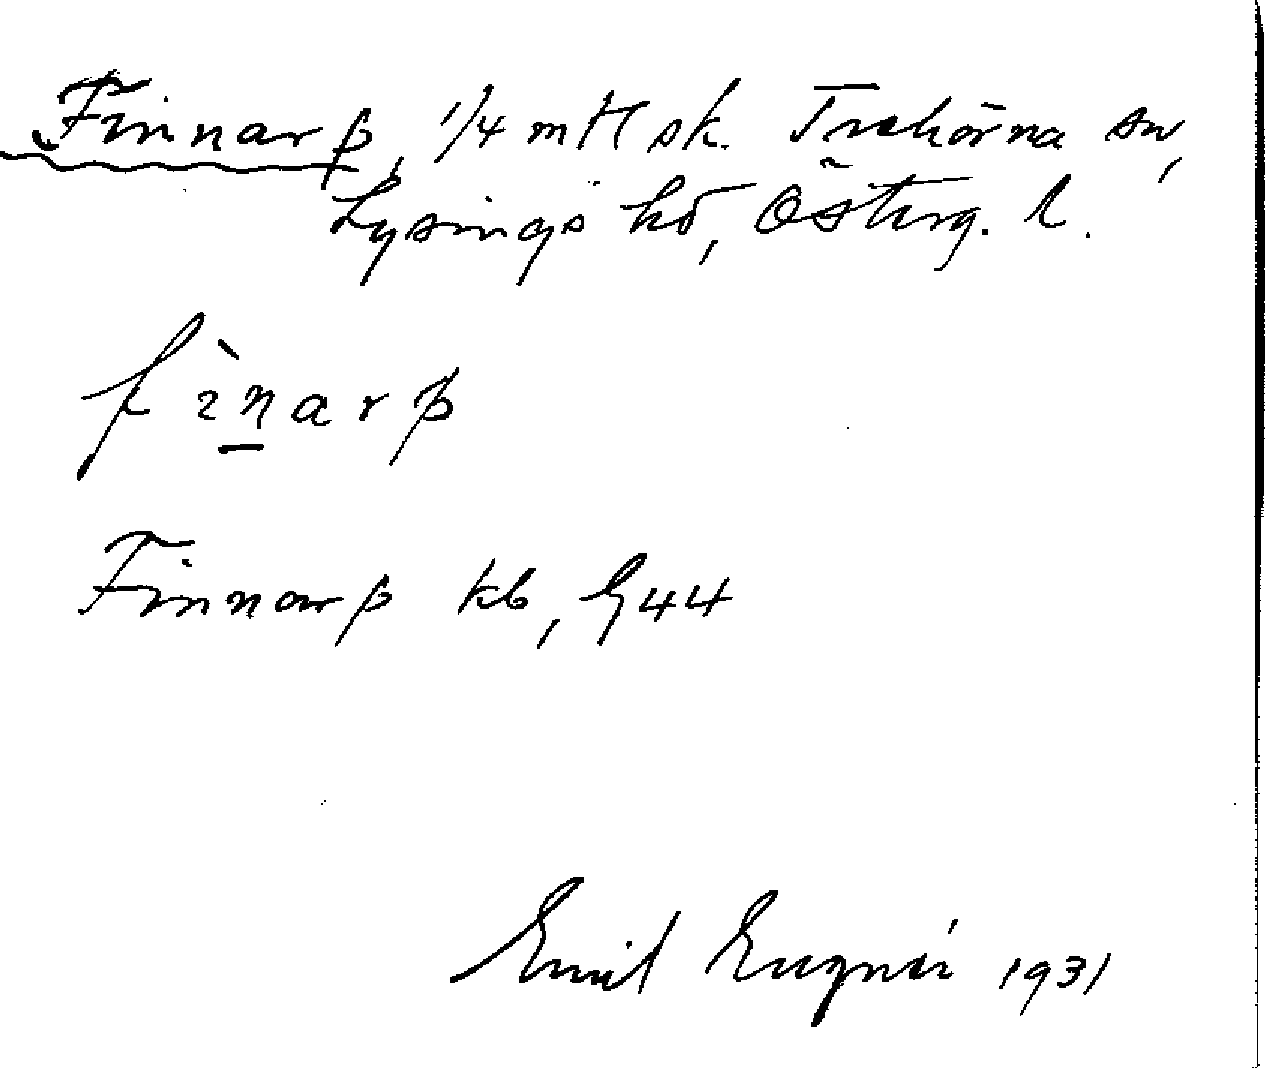 Finnarp, 1/4 mtl sk. Trehörna sn,
Lysings hd, Österg. l.
fìnarp
Finnarp kb, G44
Emil 1931